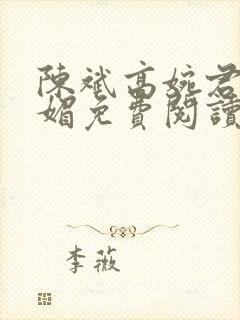 陳斌高婉君
媚免費閱讀
李薇